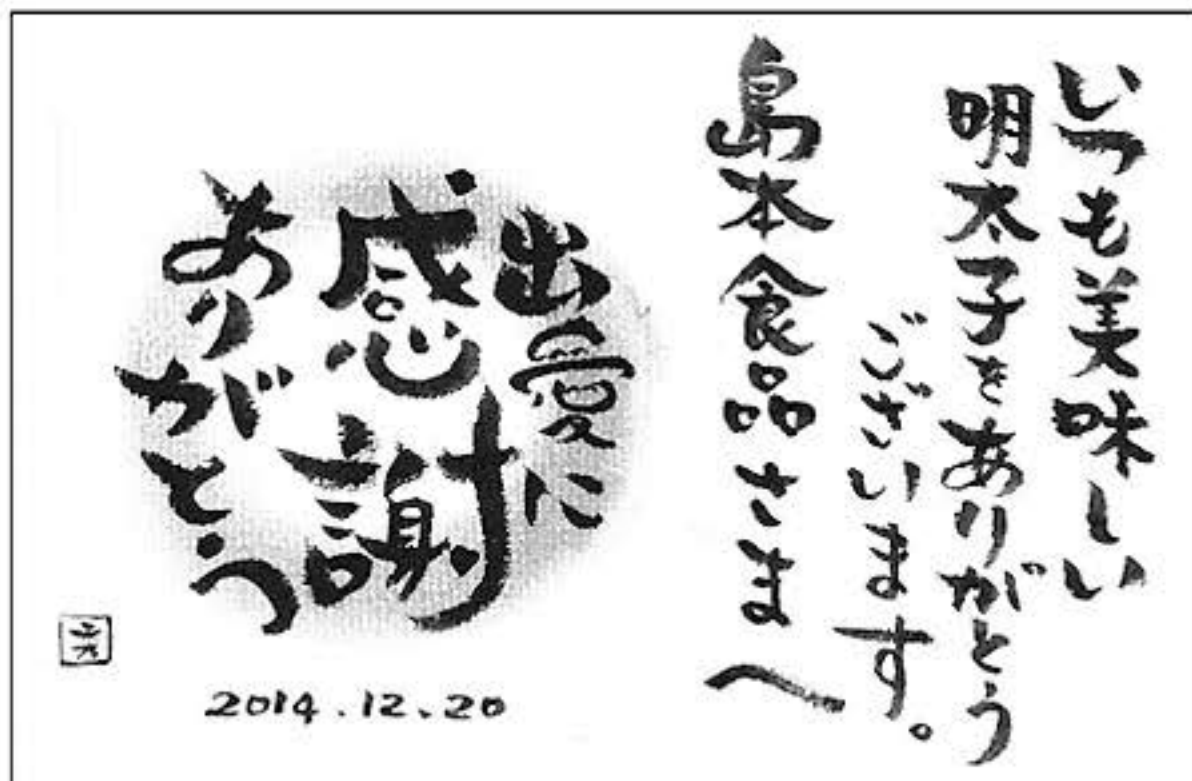 いつも美味しい
明太子をありがとう
ございます。
島本食品さまへ
出愛に
感謝
ありがとう
2014.12.20